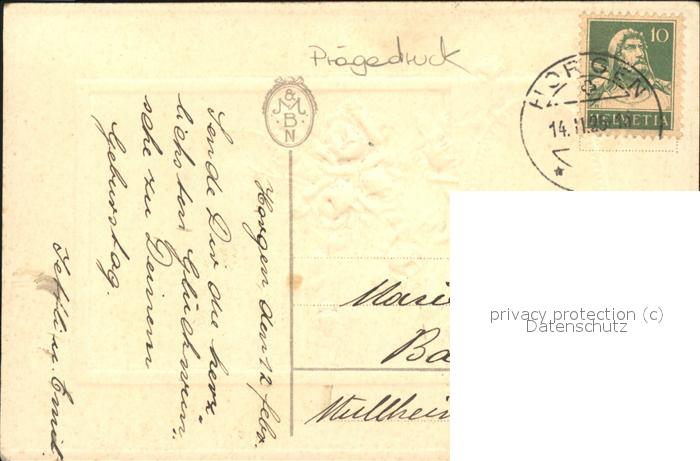 Prägedruck
10
HELVETIA
HORGEN
14.II.
M&BN
Horgen, den 12 febr.
Sende Dir die herz-
lichsten Glückwün-
sche zu Deinem
Geburstag.
u. Emil.
Ba
Müllhei
privacy protection (c)
Datenschutz